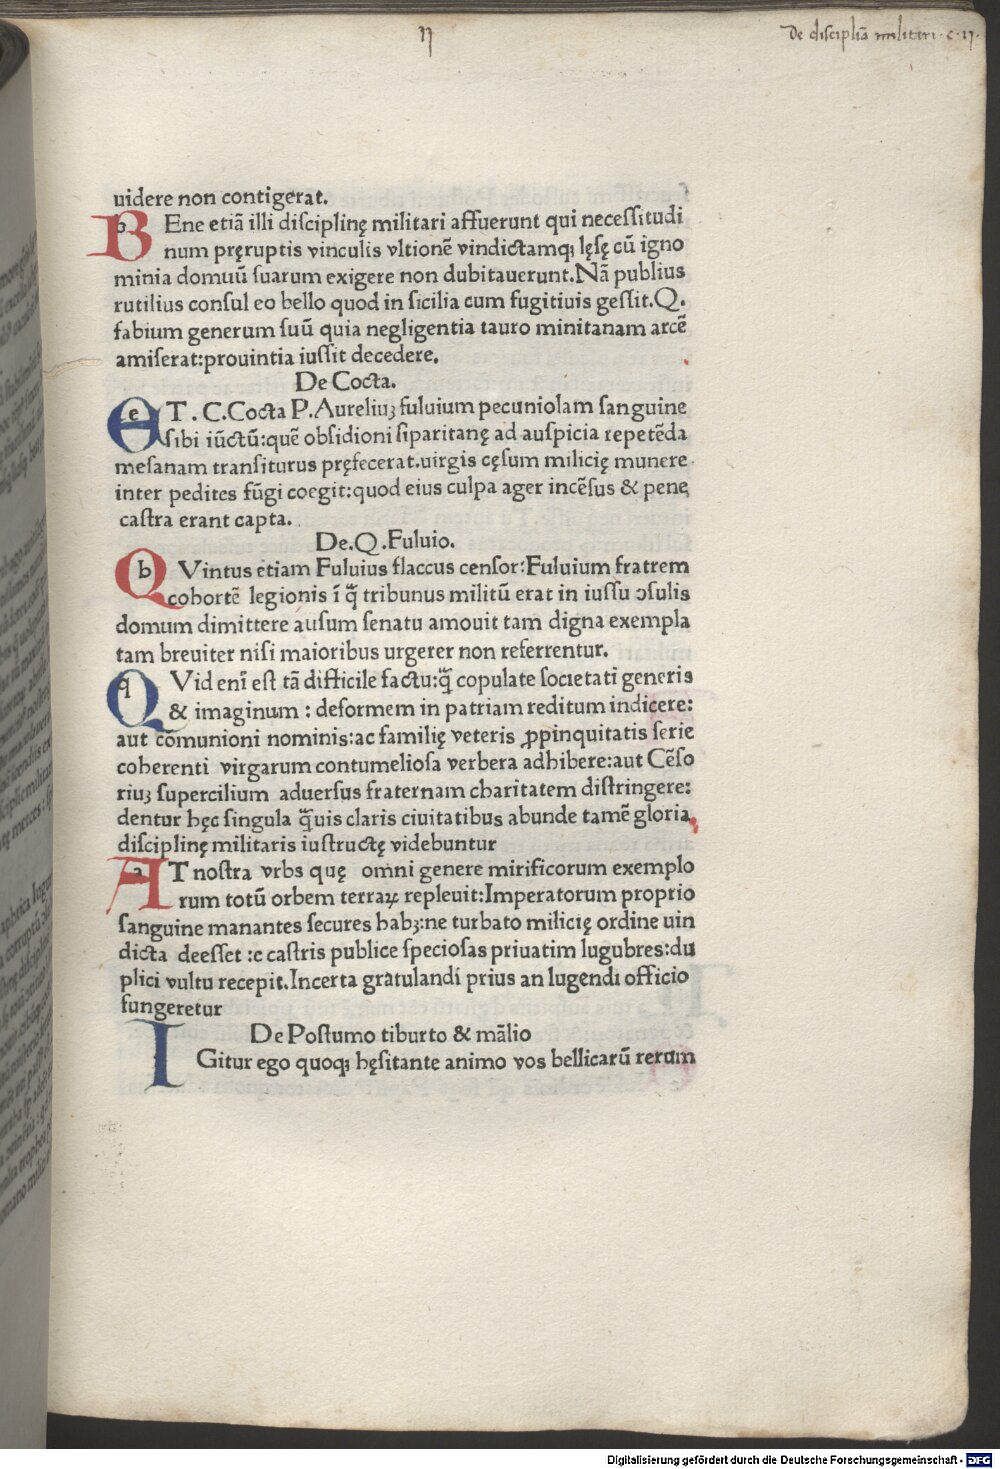 II
De disciplīa militari · c · II ·
uidere non contigerat.
BEne etiā illi disciplinę militari affuerunt qui necessitudi
num pręruptis vinculis vltionē vindictamqꝫ lęsę cū igno
minia domuū suarum exigere non dubitauerunt.Nā publius
rutilius consul eo bello quod in sicilia cum fugitiuis gessit.Q.
fabium generum suū quia negligentia tauro minitanam arcē
amiserat:prouintia iussit decedere.
De Cocta.
eT . C.Cocta P.Aureliuꝫ fuluium pecuniolam sanguine
sibi iūctū:quē obsidioni siparitanę ad auspicia repetēda
mesanam transiturus pręfecerat.uirgis cęsum milicię munere
inter pedites fūgi coegit:quod eius culpa ager incēsus & pene
castra erant capta.
De.Q.Fuluio.
QVintus etiam Fuluius flaccus censor:Fuluium fratrem
cohortē legionis ī q̄ tribunus militū erat in iussu ↄsulis
domum dimittere ausum senatu amouit tam digna exempla
tam breuiter nisi maioribus urgerer non referrentur.
QVid enī est tā difficile factu:q̄ copulate societati generis
& imaginum : deformem in patriam reditum indicere:
aut cōmunioni nominis:ac familię veteris ꝓpinquitatis serie
coherenti virgarum contumeliosa verbera adhibere:aut Cēso
riuꝫ supercilium aduersus fraternam charitatem distringere:
dentur hęc singula q̄uis claris ciuitatibus abunde tamē gloria
disciplinę militaris iustructę videbuntur
AT nostra vrbs quę omni genere mirificorum exemplo
rum totū orbem terraꝝ repleuit:Imperatorum proprio
sanguine manantes secures habꝫ:ne turbato milicię ordine uin
dicta deesset :e castris publice speciosas priuatim lugubres:du
plici vultu recepit.Incerta gratulandi prius an lugendi officio
fungeretur
De Postumo tiburto & mālio
IGitur ego quoqꝫ hęsitante animo vos bellicarū rerum
Digitalisierung gefördert durch die Deutsche Forschungsgemeinschaft - DFG